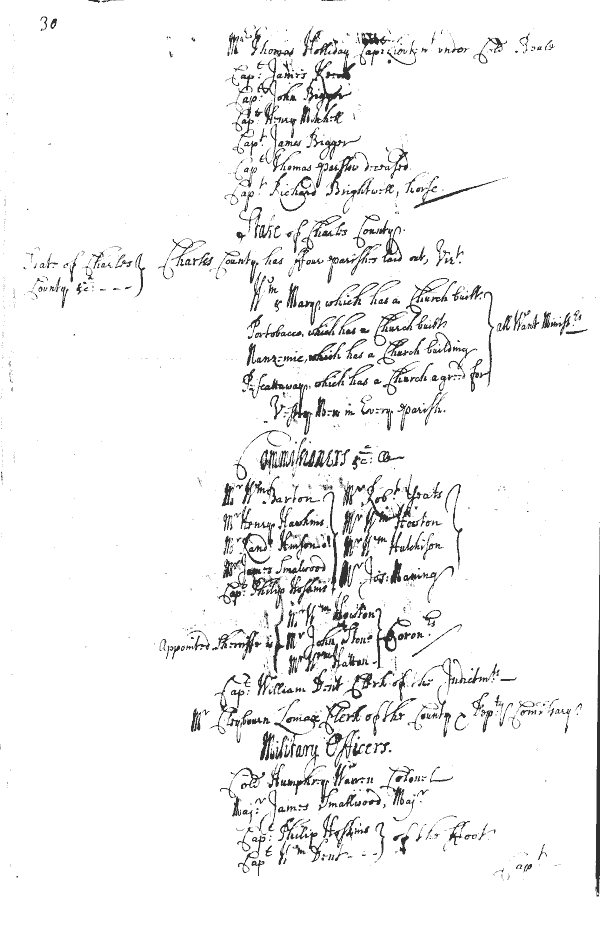 30
Mr Thomas Holliday Capt: Lieutent under Coll Beale
Capt: James Keech
Capt: John Bigger
Capt Henry Mitchell
Capt James Bigger
Capt Thomas parslow deceased
Capt Richard Brightwell, horse
State of Charles County.
State of Charles County &c: - - - }
Charles County has ffour parishes laid out, Vizt.
Wm & Mary, which has a Church built.
Portobacco, which has a Church built
Nanzemie, which has a Church building
Piscattaway, which has a Church agreed for
} all Want Ministers
Vestry Men in Every parish.
Commissioners &c:
Mr Wm Barton } Mr Robt Yeats
Mr Henry Hawkins } Mr Wm Houston
Mr Rand: Hinson } Mr Wm Hutchison
Mr James Smalwood } Mr Jos: Maning
Capt Philip Hoskins
Appointed Sheriffe { Mr Wm Houston
Mr John Stone } Coroners
Mr Wm Hatton
Capt: William Dent Clerk of the Indictmts
Mr Cleybourn Lomax Clerk of the County & Depty Comissary.
Military Officers.
Coll Humphrey Warren Colonel
Majr James Smallwood, Majr
Capt: Philip Hoskins
Capt Wm Dent - - - } of the ffoot
Capt